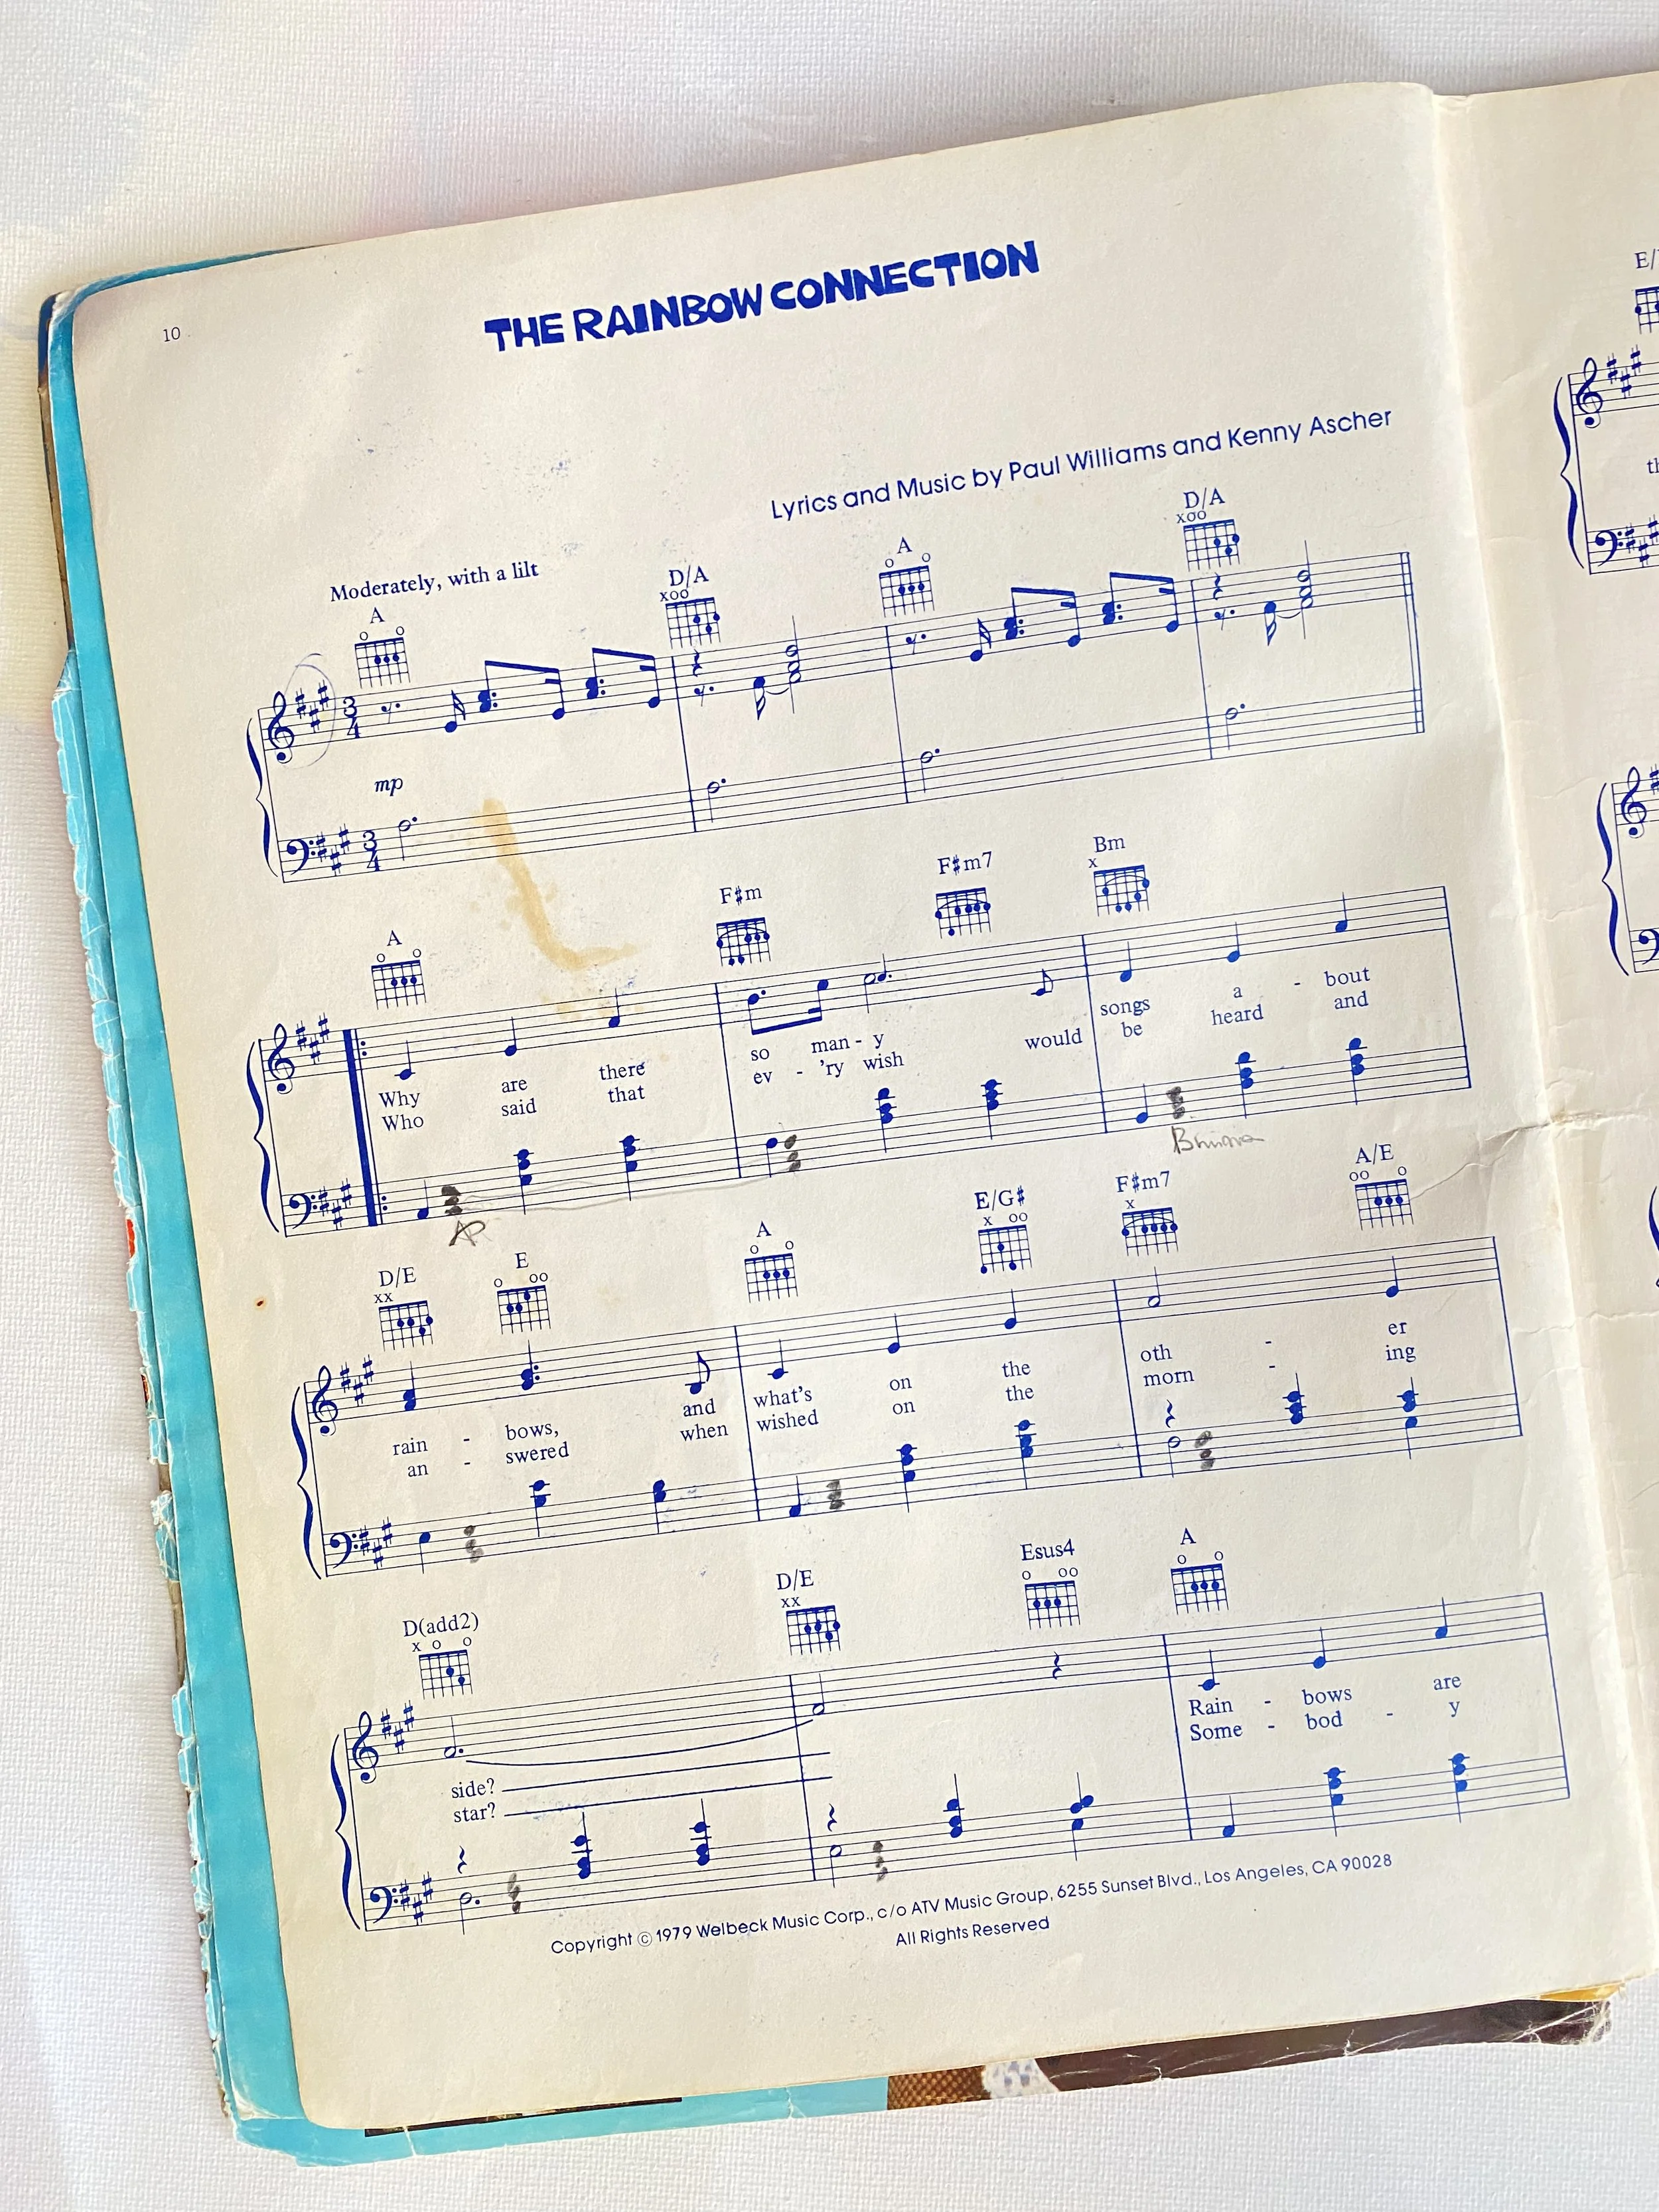 10
THE RAINBOW CONNECTION
Lyrics and Music by Paul Williams and Kenny Ascher
Moderately, with a lilt
A D/A A D/A
mp
A F♯m F♯m7 Bm
Why are there so man - y songs a - bout
Who said that ev - 'ry wish would be heard and
Bminor
D/E E A E/G♯ F♯m7 A/E
rain - bows, and what's on the oth - er
an - swered when wished on the morn - ing
D(add2) D/E Esus4 A
side? Rain - bows are
star? Some - bod - y
Copyright © 1979 Welbeck Music Corp., c/o ATV Music Group, 6255 Sunset Blvd., Los Angeles, CA 90028
All Rights Reserved